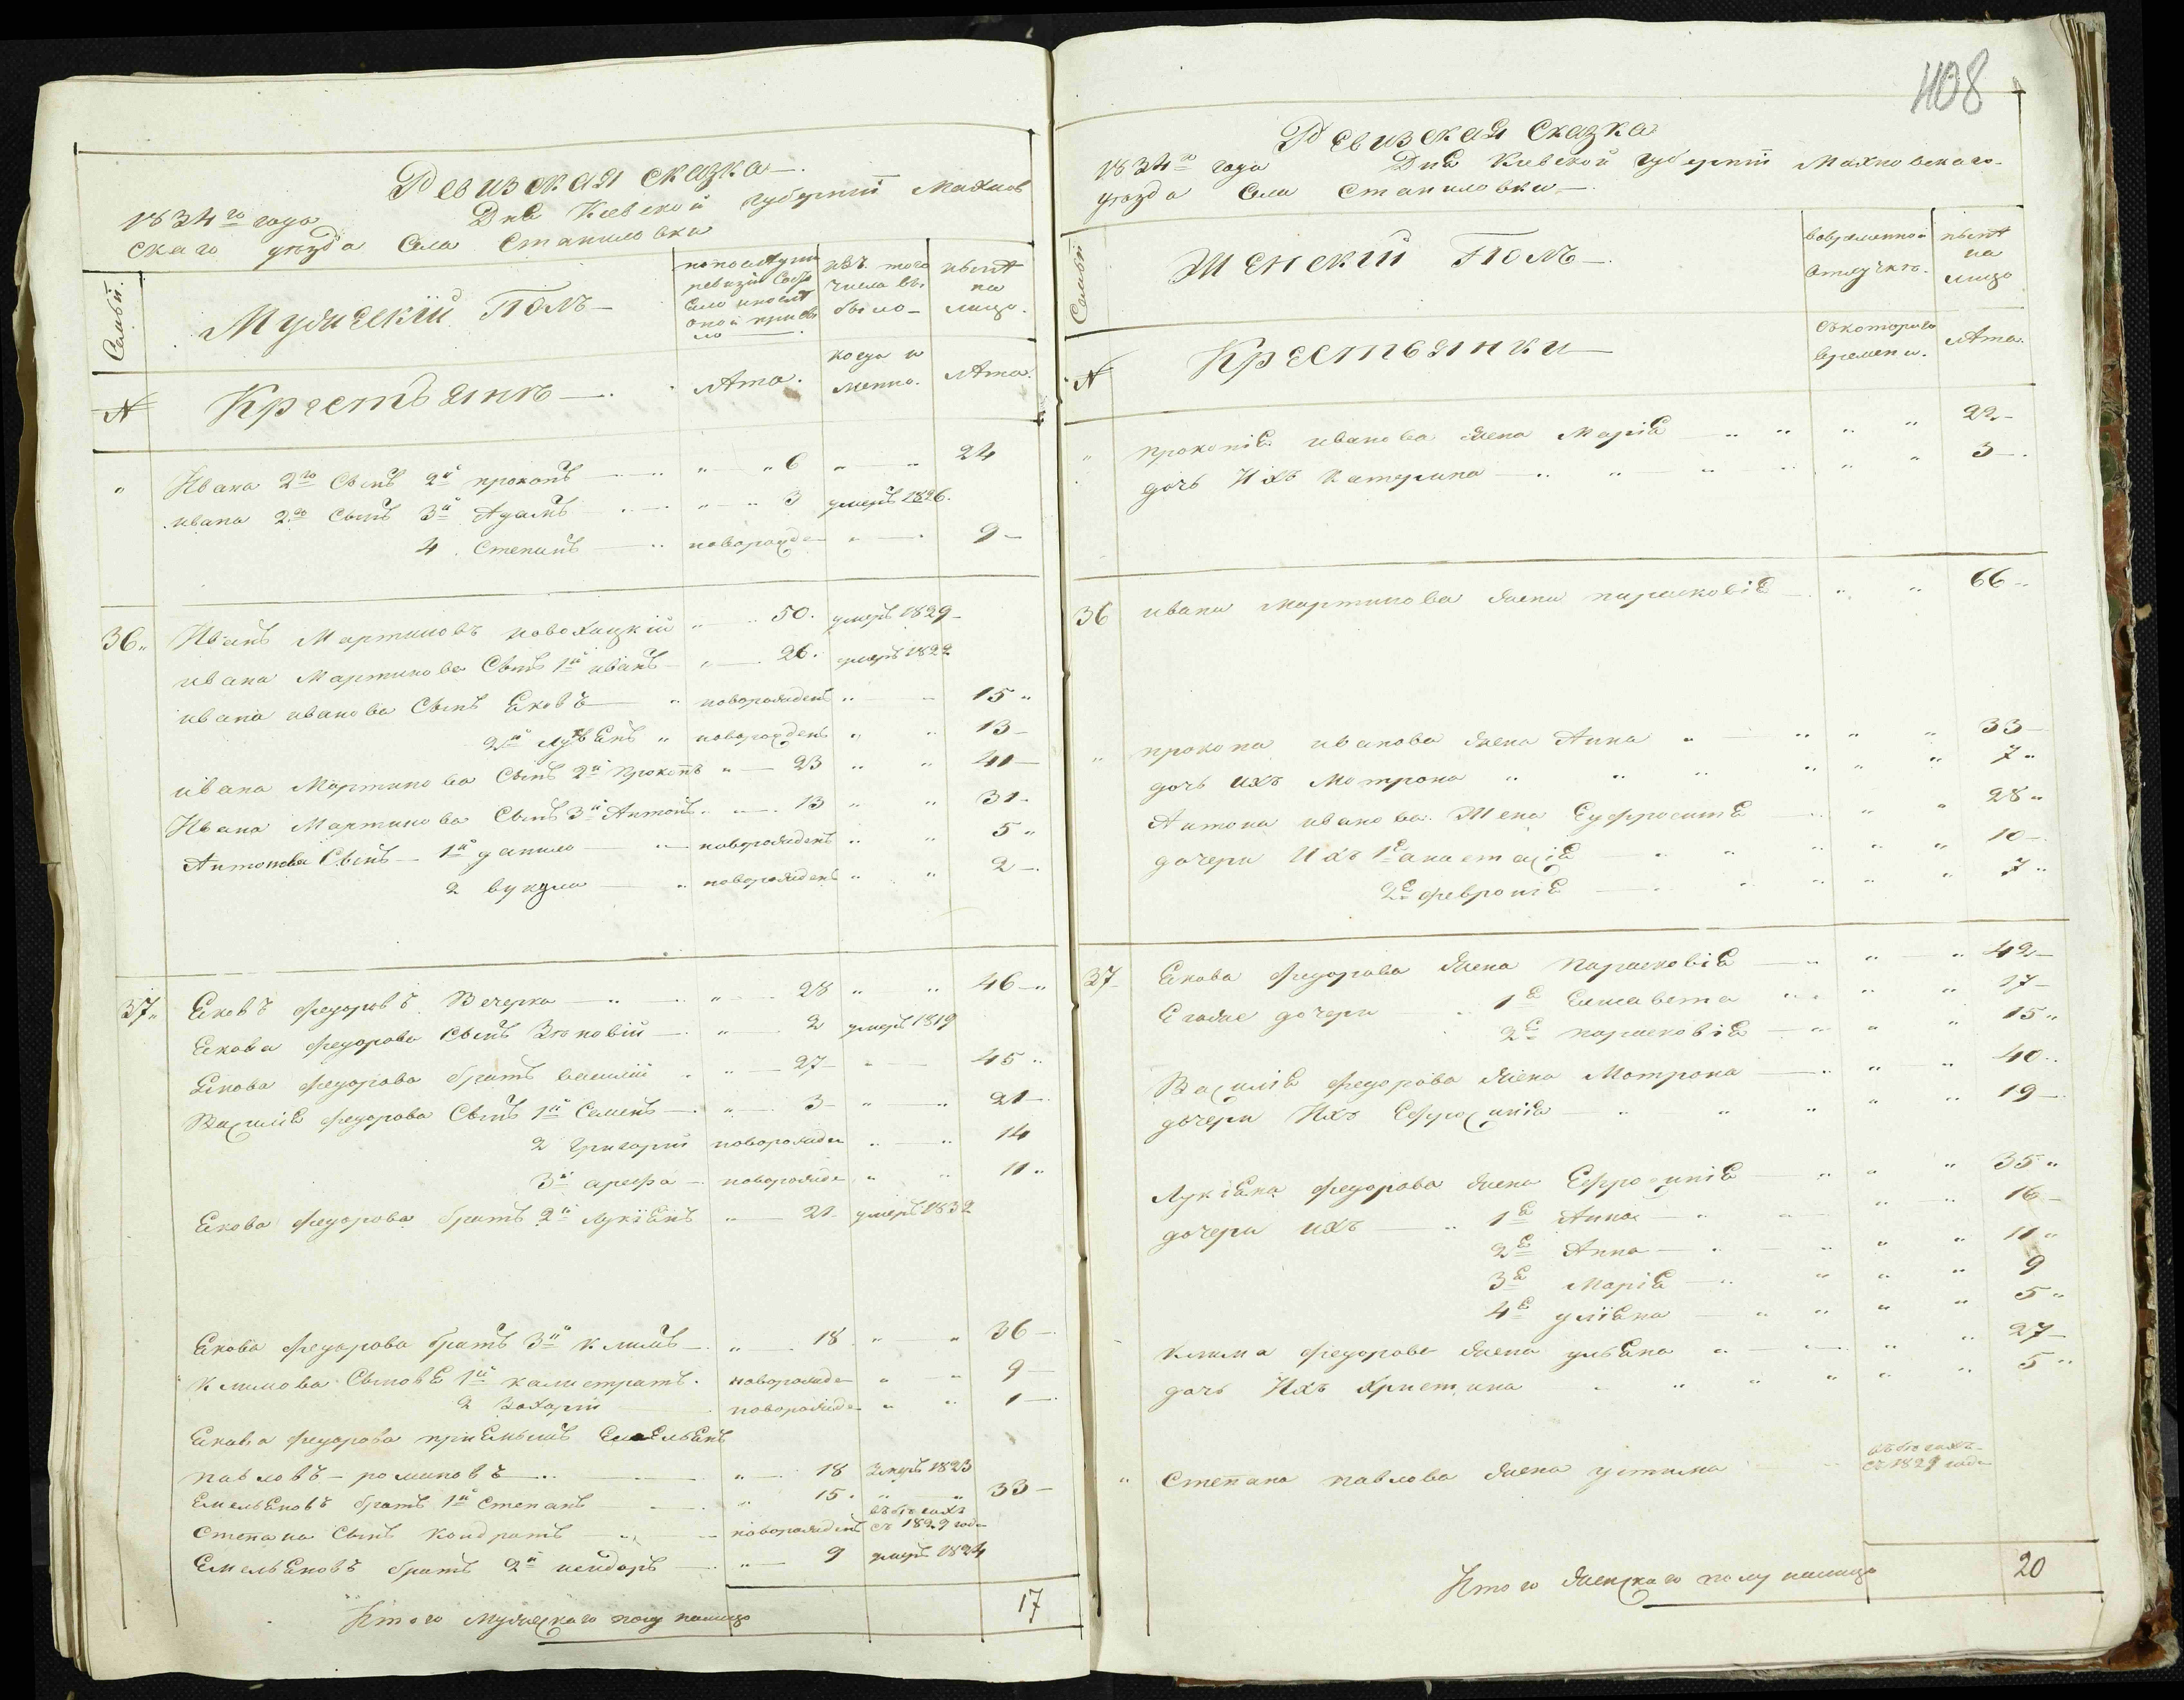 Ревизская сказка
1834го года Дня Киевской Губерніи Махнов
скаго уезда Села Станиловки
Семьи
Мужескій Полъ
изъ того числа вы было
нынѣ на лицо
№
Крестьянѣ
Лѣта.
когда именно.
Лѣта.
Ивана 2го Сынъ 2й прокопъ 6 24
ивана 2го Сынъ 3й Адамъ 3 умеръ 1826.
4. Степанъ новорожде 9
36 Иванъ Мартиновъ 50. умеръ 1829
ивана Мартинова Сынъ 1й иванъ 26. умеръ 1822
ивана иванова Сынъ Яковъ новорожденъ 15
2й новорожденъ 13
ивана Мартинова Сынъ 2й Прокопъ 23 41
Ивана Мартинова Сынъ 3й Антонъ 13 31
Антонова Сынъ 1й данило новорожденъ 5
2 вукула новорожденъ 2
37 Яковъ федоровъ Вечерко 28 46
Якова федорова Сынъ Зѣновій 2 умеръ 1819
Якова федорова братъ василій 27 45
Василія федорова Сынъ 1й Семенъ 3 21
2 Григорій новорожде 14
3й арефа новорожде 11
Якова федорова братъ 2й Лукіянъ 21 умеръ 1832
Якова федорова братъ 3й климъ 18 36
климова Сыновя 1й калистратъ новорожде 9
2 Захарій новорожде 1
Якова федорова приемышъ Емельянъ
павловъ романовъ 18 Умеръ 1823
Емельяновъ братъ 1й Степанъ 15 33
Степана Сынъ Кондратъ новорожденъ въ бегахъ съ 1829 года
Емельяновъ братъ 2й исидоръ 9 умеръ 1824
Итого Мужескаго полу налицо 17
408
Ревизская Сказка
1834го года Дня Киевской Губерніи Махновскаго
уезда Села Станиловки
Семьи
Женскій Полъ
вовременной отлучкѣ.
нынѣ на лицо
№
Крестьянки
Съкоторого времени.
Лѣта.
прокопія иванова жена Марія 22
дочь Ихъ Катерина 3
36 ивана Мартинова жена парасковія 66
прокопа иванова жена Анна 33
дочь ихъ Мотрона 7
Антона иванова Жена Еуфросинія 28
дочери Ихъ 1я анастасія 10
2я февронія 7
37 Якова федорова жена Парасковія 42
Егоже дочери 1я Елисавета 17
2я парасковія 15
Василія федорова жена Мотрона 40
дочери Ихъ Ефросинія 19
Лукіяна федорова жена Ефросинія 35
дочери ихъ 1я Анна 16
2я Анна 11
3я Марія 9
4я уліяна 5
клима федорова жена ульяна 27
дочь Ихъ Христина 5
Степана павлова жена устина въ бегахъ съ 1829 года
Итого женскаго полу налицо 20